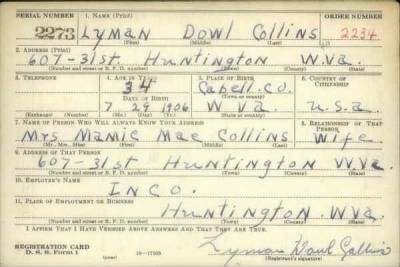 SERIAL NUMBER 1. NAME (Print) ORDER NUMBER
2273 Lyman Dowl Collins 2234
(First) (Middle) (Last)
2. ADDRESS (Print)
607-31st Huntington W.Va.
(Number and street or R. F. D. number) (Town) (County) (State)
3. TELEPHONE 4. AGE IN YEARS 5. PLACE OF BIRTH 6. COUNTRY OF CITIZENSHIP
34 Cabell.Co.
DATE OF BIRTH (Town or county)
7 29 1906 W Va U.S.A.
(Mo.) (Day) (Yr.) (State or country)
7. NAME OF PERSON WHO WILL ALWAYS KNOW YOUR ADDRESS 8. RELATIONSHIP OF THAT PERSON
Mrs Mamie Mae Collins Wife
(Mr., Mrs., Miss) (First) (Middle) (Last)
9. ADDRESS OF THAT PERSON
607-31st Huntington W.Va.
(Number and street or R. F. D. number) (Town) (County) (State)
10. EMPLOYER'S NAME
INCO.
11. PLACE OF EMPLOYMENT OR BUSINESS
Huntington. W.Va.
(Number and street or R. F. D. number) (Town) (County) (State)
I AFFIRM THAT I HAVE VERIFIED ABOVE ANSWERS AND THAT THEY ARE TRUE.
REGISTRATION CARD
D. S. S. Form 1 (over) Lyman Dowl Collins
(Registrant's signature)